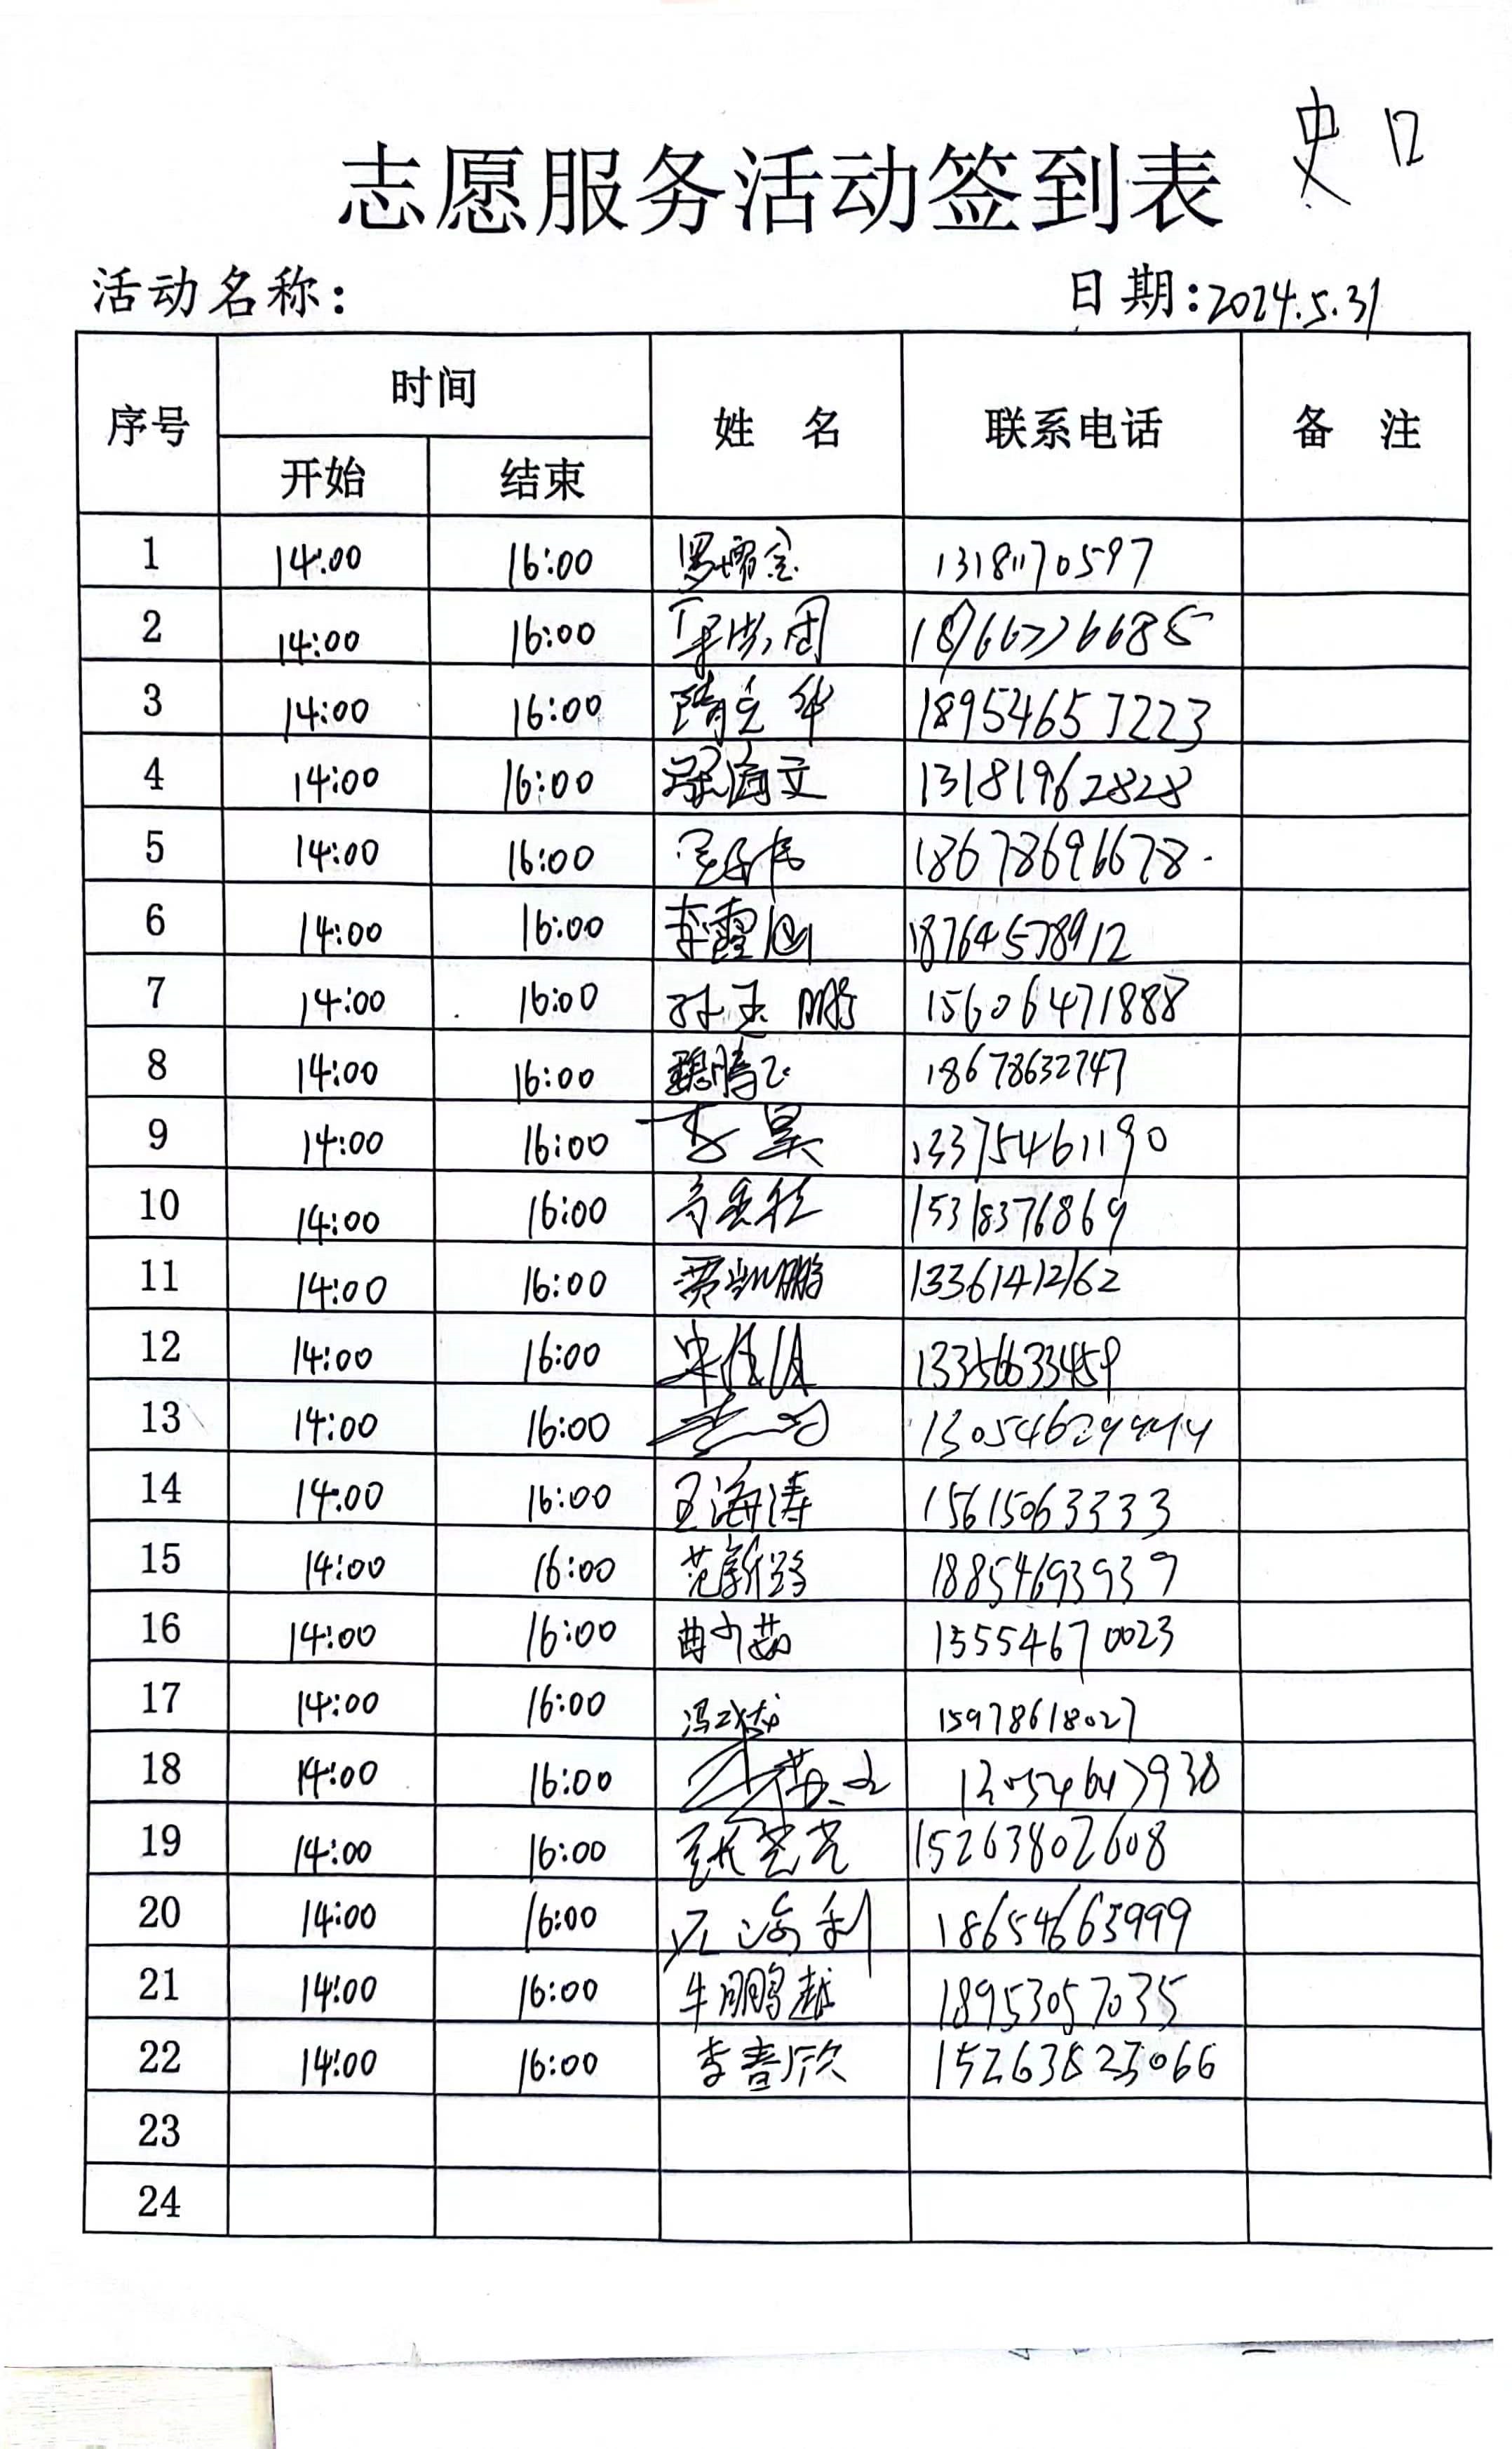 史口
志愿服务活动签到表
活动名称： 日期：2024.5.31
序号 时间 姓名 联系电话 备注
开始 结束
1 14:00 16:00 13181170597
2 14:00 16:00 18766776685
3 14:00 16:00 隋立华 18954657223
4 14:00 16:00 梁海文 13181962828
5 14:00 16:00 18678696678
6 14:00 16:00 18764578912
7 14:00 16:00 孙玉鹏 15606471888
8 14:00 16:00 魏腾飞 18678632747
9 14:00 16:00 李昊 13375461190
10 14:00 16:00 15318376869
11 14:00 16:00 贾凯鹏 13361412162
12 14:00 16:00 13356633459
13 14:00 16:00
14 14:00 16:00 王海涛 15615063333
15 14:00 16:00 范新路 18854693939
16 14:00 16:00 曲少茹 15554670023
17 14:00 16:00 15978618027
18 14:00 16:00
19 14:00 16:00 张亮亮 15263802608
20 14:00 16:00 18654663999
21 14:00 16:00 牛鹏越 18953057035
22 14:00 16:00 李春欣 15263823066
23
24